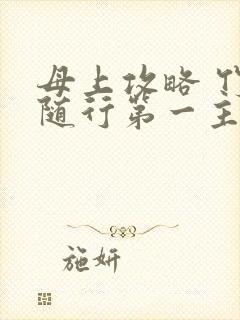 母上攻略
随行第一主
施妍